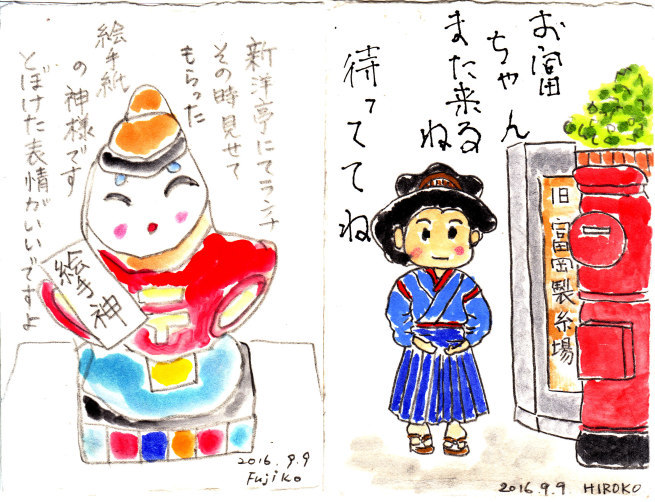 新洋亭にてランチ
その時見せて
もらった
絵手紙
の神様です
とぼけた表情がいいですよ
絵手神
2016.9.9
Fujiko
お富
ちゃん
また来る
ね
待っててね
旧富岡製糸場
2016.9.9 HIROKO